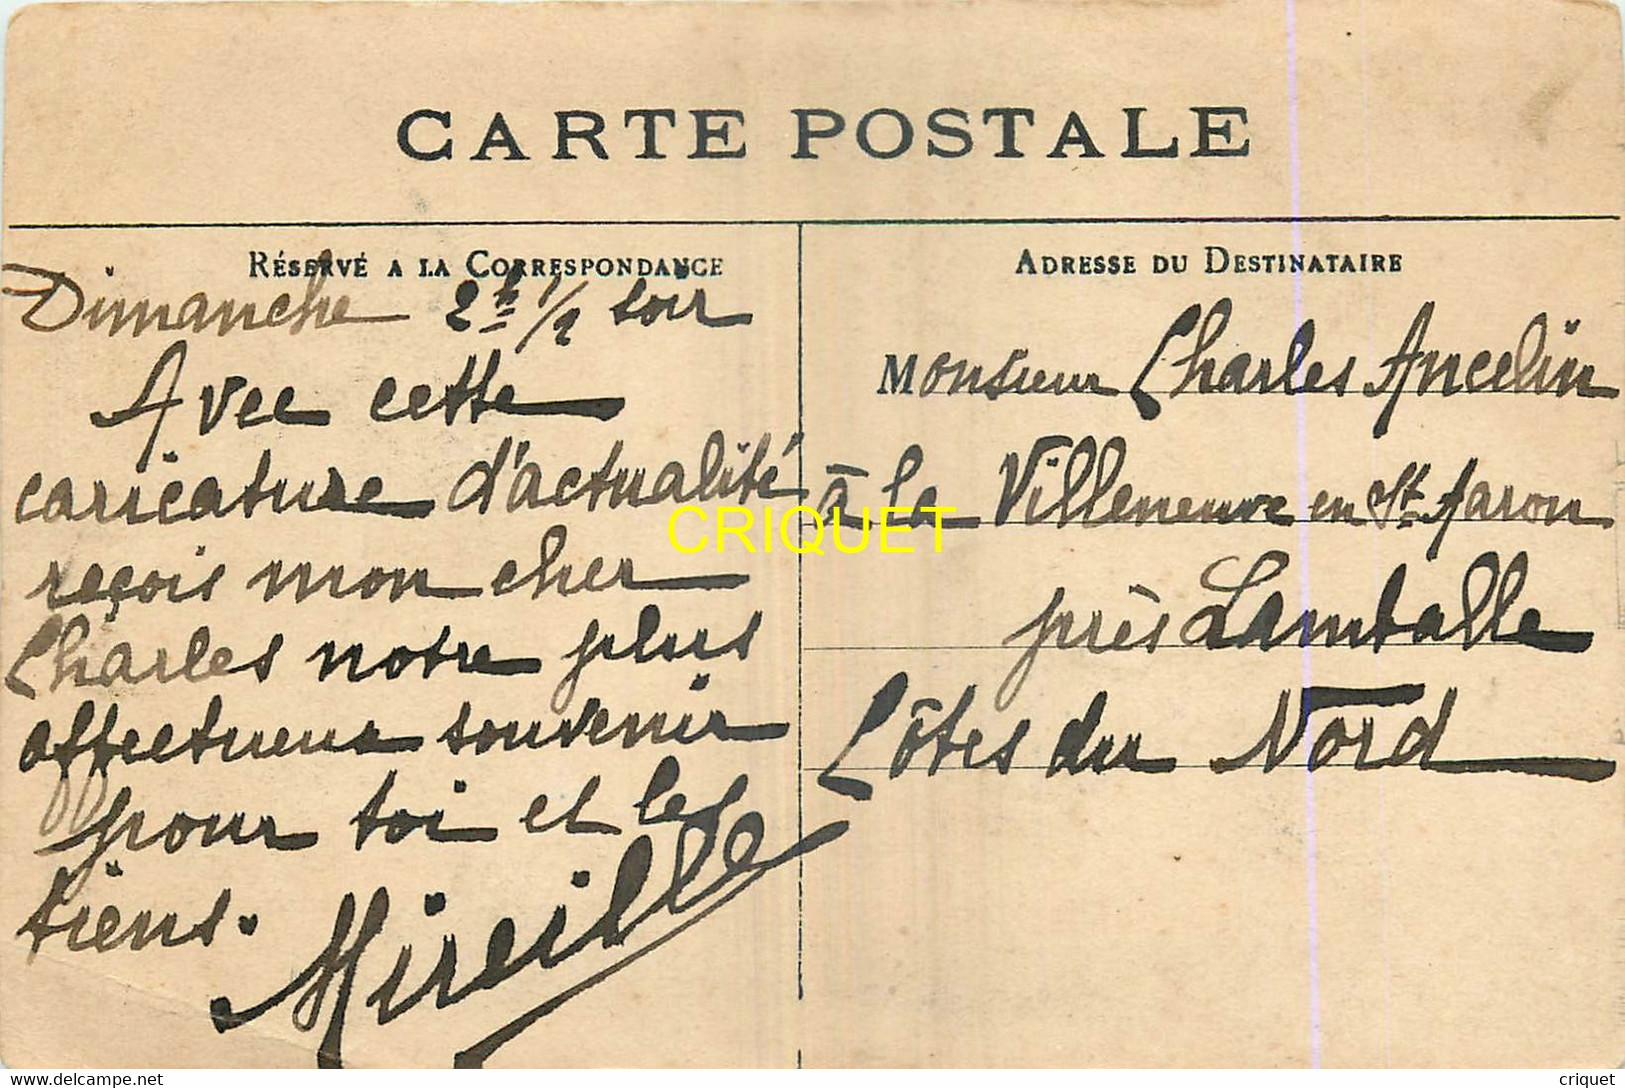 CARTE POSTALE
RÉSERVÉ A LA CORRESPONDANCE
Dimanche 2h 1/2 soir
Avec cette
caricature d'actualité
reçois mon cher
Charles notre plus
affectueux souvenir
pour toi et les
tiens.
Mireille
ADRESSE DU DESTINATAIRE
Monsieur Charles Ancelin
à la Villeneuve en St Aaron
près Lamballe
Côtes du Nord
CRIQUET
www.delcampe.net
criquet